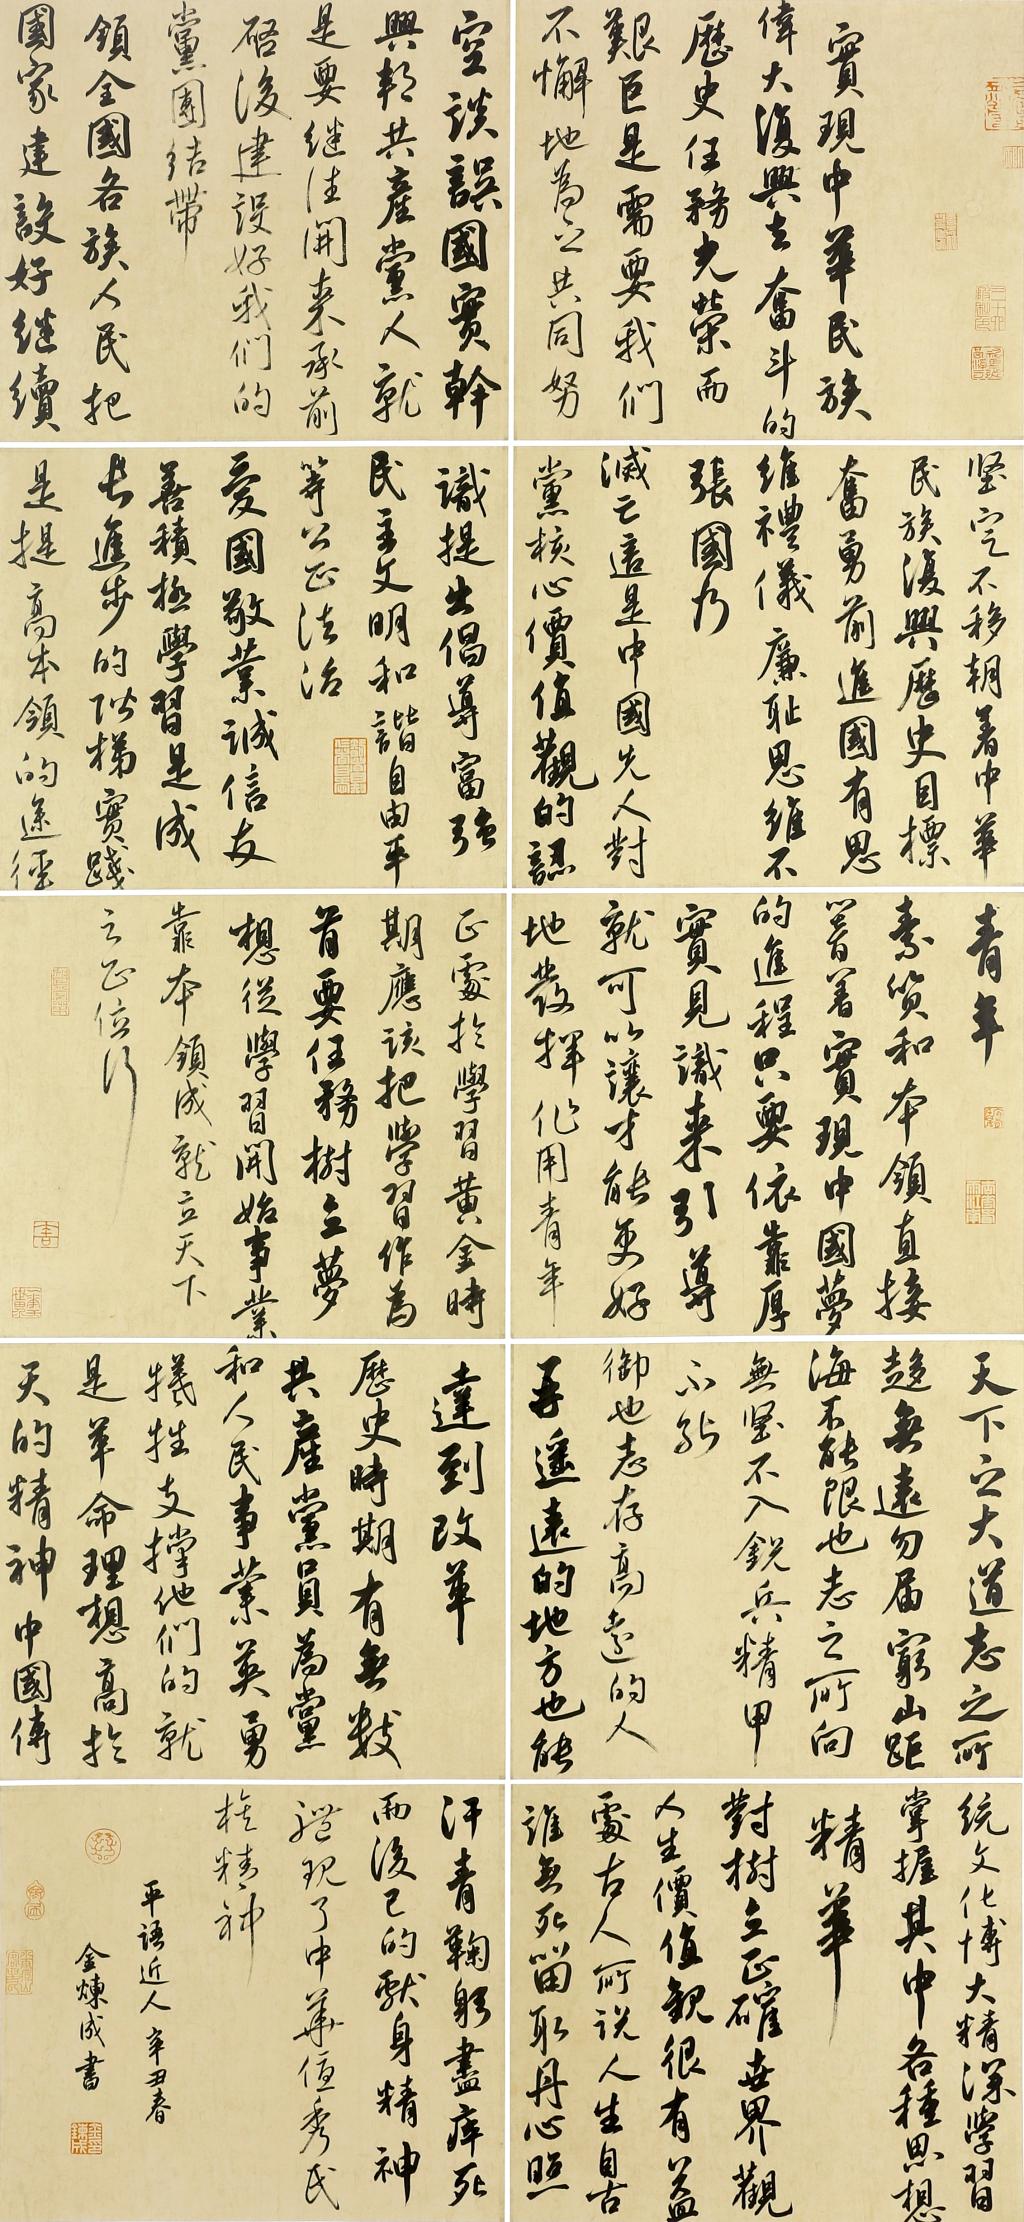 實現中華民族
偉大復興去奮斗的
歷史任務光榮而
艱巨是需要我們
不懈地為之共同努
空談誤國實幹
興邦共產黨人就
是要继往開来承前
啓後建設好我們的
黨團结帶
領全國各族人民把
國家建設好继續
坚定不移朝着中華
民族復興歷史目標
奮勇前進國有思
維禮儀廉耻思維不
張國乃
滅亡這是中國先人對
黨核心價值觀的認
識提出倡導富强
民主文明和諧自由平
等公正法治
愛國敬業誠信友
善積極學習是成
長進步的阶梯實踐
是提高本領的途徑
青年
素質和本領直接
影着實現中國夢
的進程只要依靠厚
實見識来引導
就可以讓才能更好
地發揮作用青年
正處於學習黃金時
期應该把學習作為
首要任務樹立夢
想從學習開始事業
靠本領成就立天下
之正位行
天下之大道志之所
趋無遠勿届窮山距
海不能限也志之所向
無坚不入鋭兵精甲
不能
御也志存高遠的人
再遥遠的地方也能
達到改革
歷史時期有無数
共產黨員為黨
和人民事業英勇
犧牲支撑他們的就
是革命理想高於
天的精神中國傳
統文化博大精深學習
掌握其中各種思想
精華
對樹立正確世界觀
人生價值觀很有益
處古人所说人生自古
誰無死留取丹心照
汗青鞠躬盡瘁死
而後已的獻身精神
體现了中華優秀民
族精神
平語近人 辛丑春
金煉成書